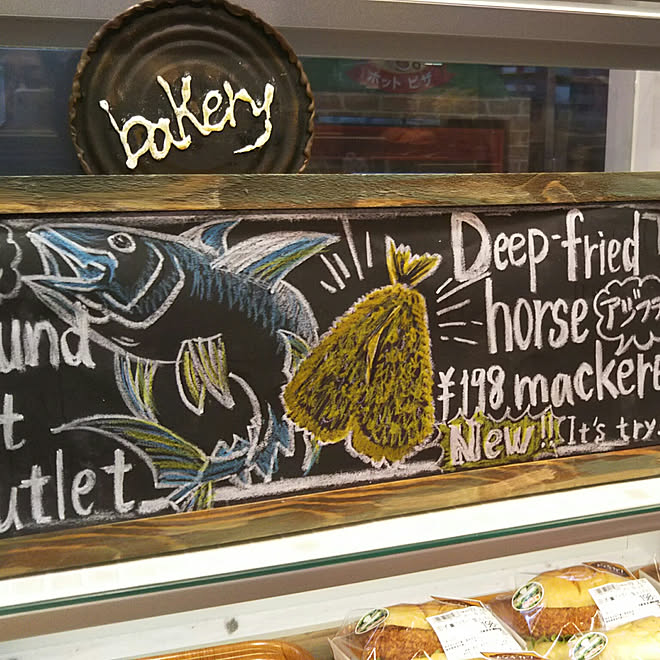 bakery
ホット ピザ
Deep-fried
horse アジフラ
¥198 macker
New!! (It's try.
und
t
utlet